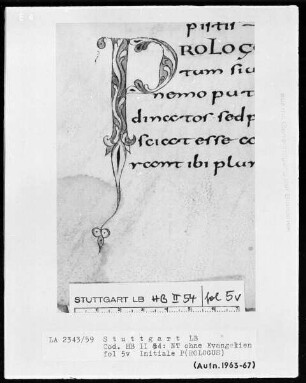 pistis
PROLOG
tum siu
nemo put
dinctos sed p
scicat esse co
rcont ibi plur
STUTTGART LB HB II 54 fol 5v
LA 2343/59 Stuttgart LB
Cod. HB II 54: NT ohne Evangelien
fol 5v Initiale P(ROLOGUS)
(Aufn. 1963-67)